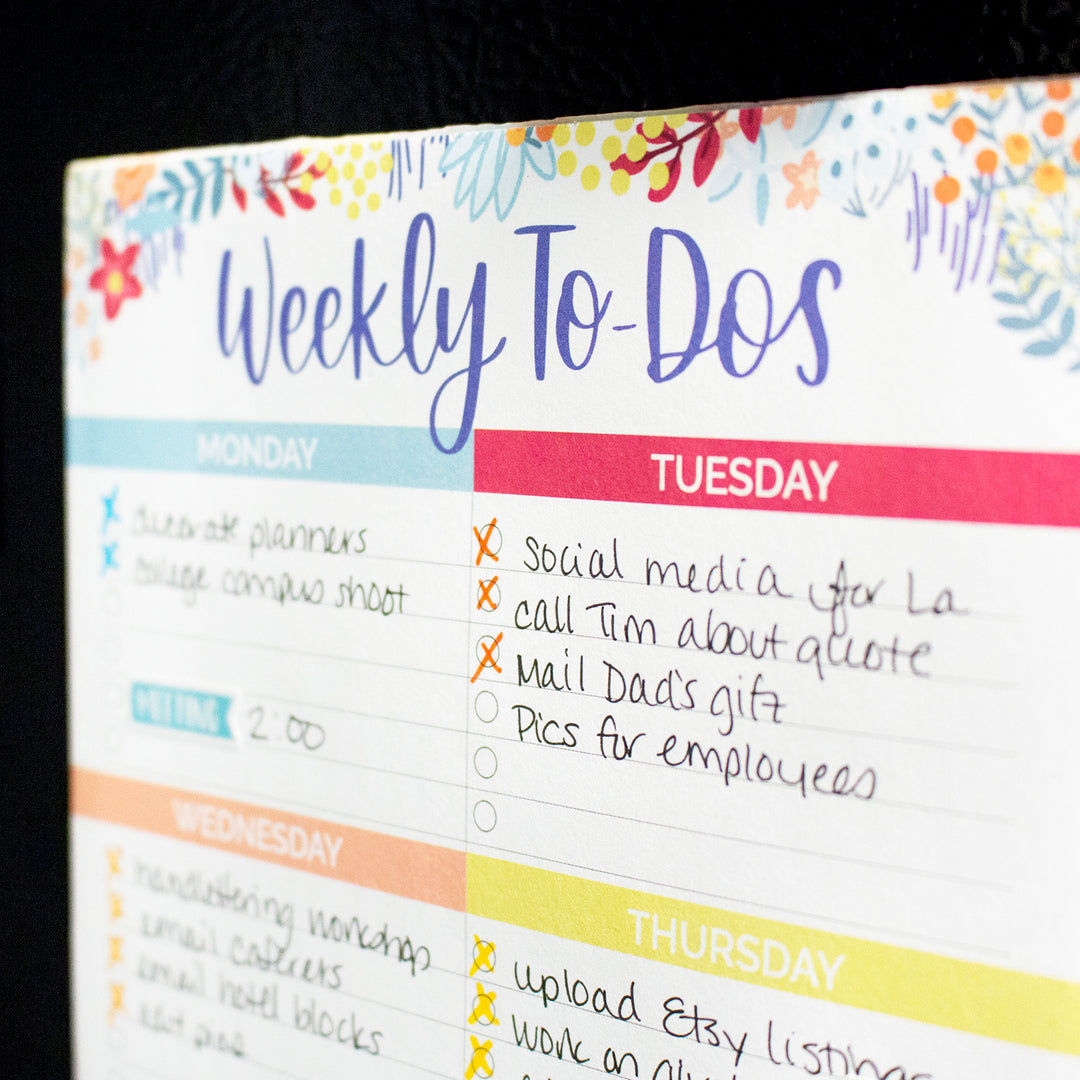 Weekly To-Dos
MONDAY
decorate planners
college campus shoot
MEETING 2:00
TUESDAY
social media for La
call Tim about quote
Mail Dad's gift
Pics for employees
WEDNESDAY
handlettering workshop
email caterers
email hotel blocks
edit pics
THURSDAY
upload Etsy listings
work on